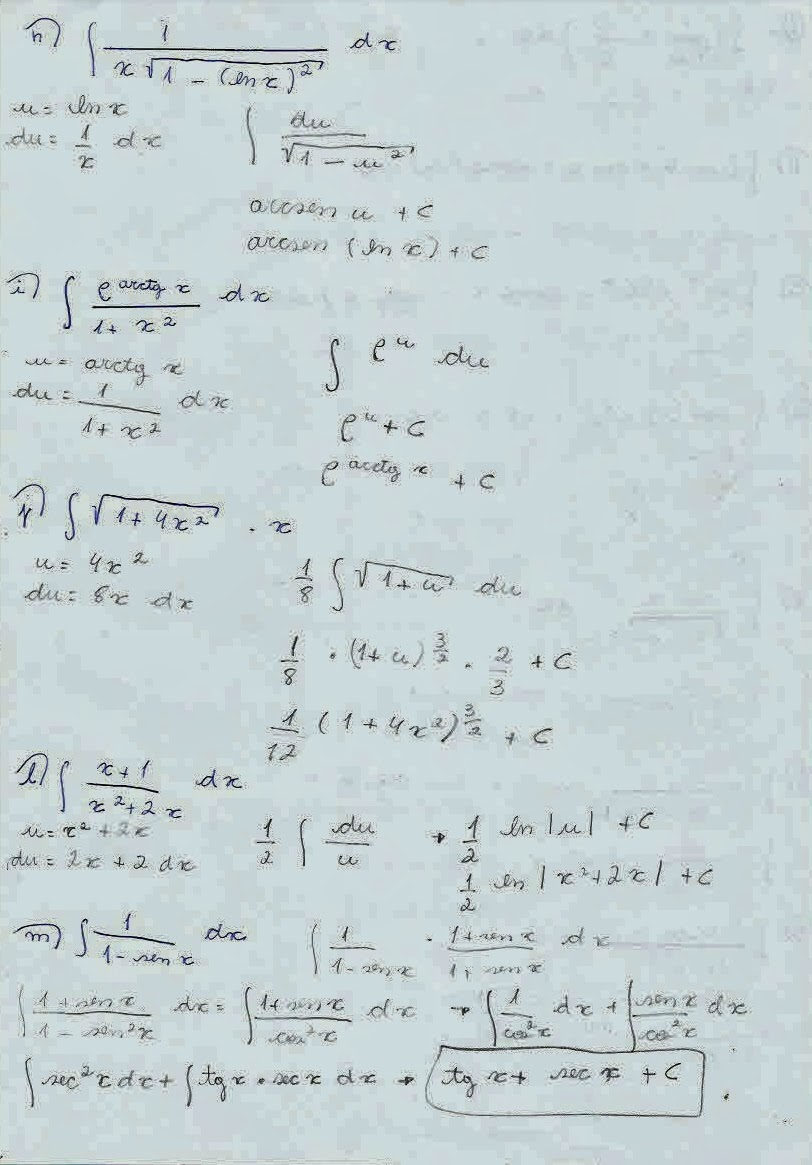 h) ∫ 1 / (x √(1 - (ln x)²)) dx
u = ln x
du = 1/x dx
∫ du / √(1 - u²)
arcsen u + C
arcsen (ln x) + C
i) ∫ e^(arctg x) / (1 + x²) dx
u = arctg x
du = 1/(1 + x²) dx
∫ e^u du
e^u + C
e^(arctg x) + C
j) ∫ √(1 + 4x²) · x
u = 4x²
du = 8x dx
1/8 ∫ √(1 + u) du
1/8 · (1 + u)^(3/2) · 2/3 + C
1/12 (1 + 4x²)^(3/2) + C
l) ∫ (x + 1)/(x² + 2x) dx
u = x² + 2x
du = 2x + 2 dx
1/2 ∫ du/u → 1/2 ln |u| + C
1/2 ln |x² + 2x| + C
m) ∫ 1/(1 - sen x) dx ∫ 1/(1 - sen x) · (1 + sen x)/(1 + sen x) dx
∫ (1 + sen x)/(1 - sen²x) dx = ∫ (1 + sen x)/cos²x dx → ∫ 1/cos²x dx + ∫ sen x/cos²x dx
∫ sec²x dx + ∫ tg x · sec x dx → tg x + sec x + C .